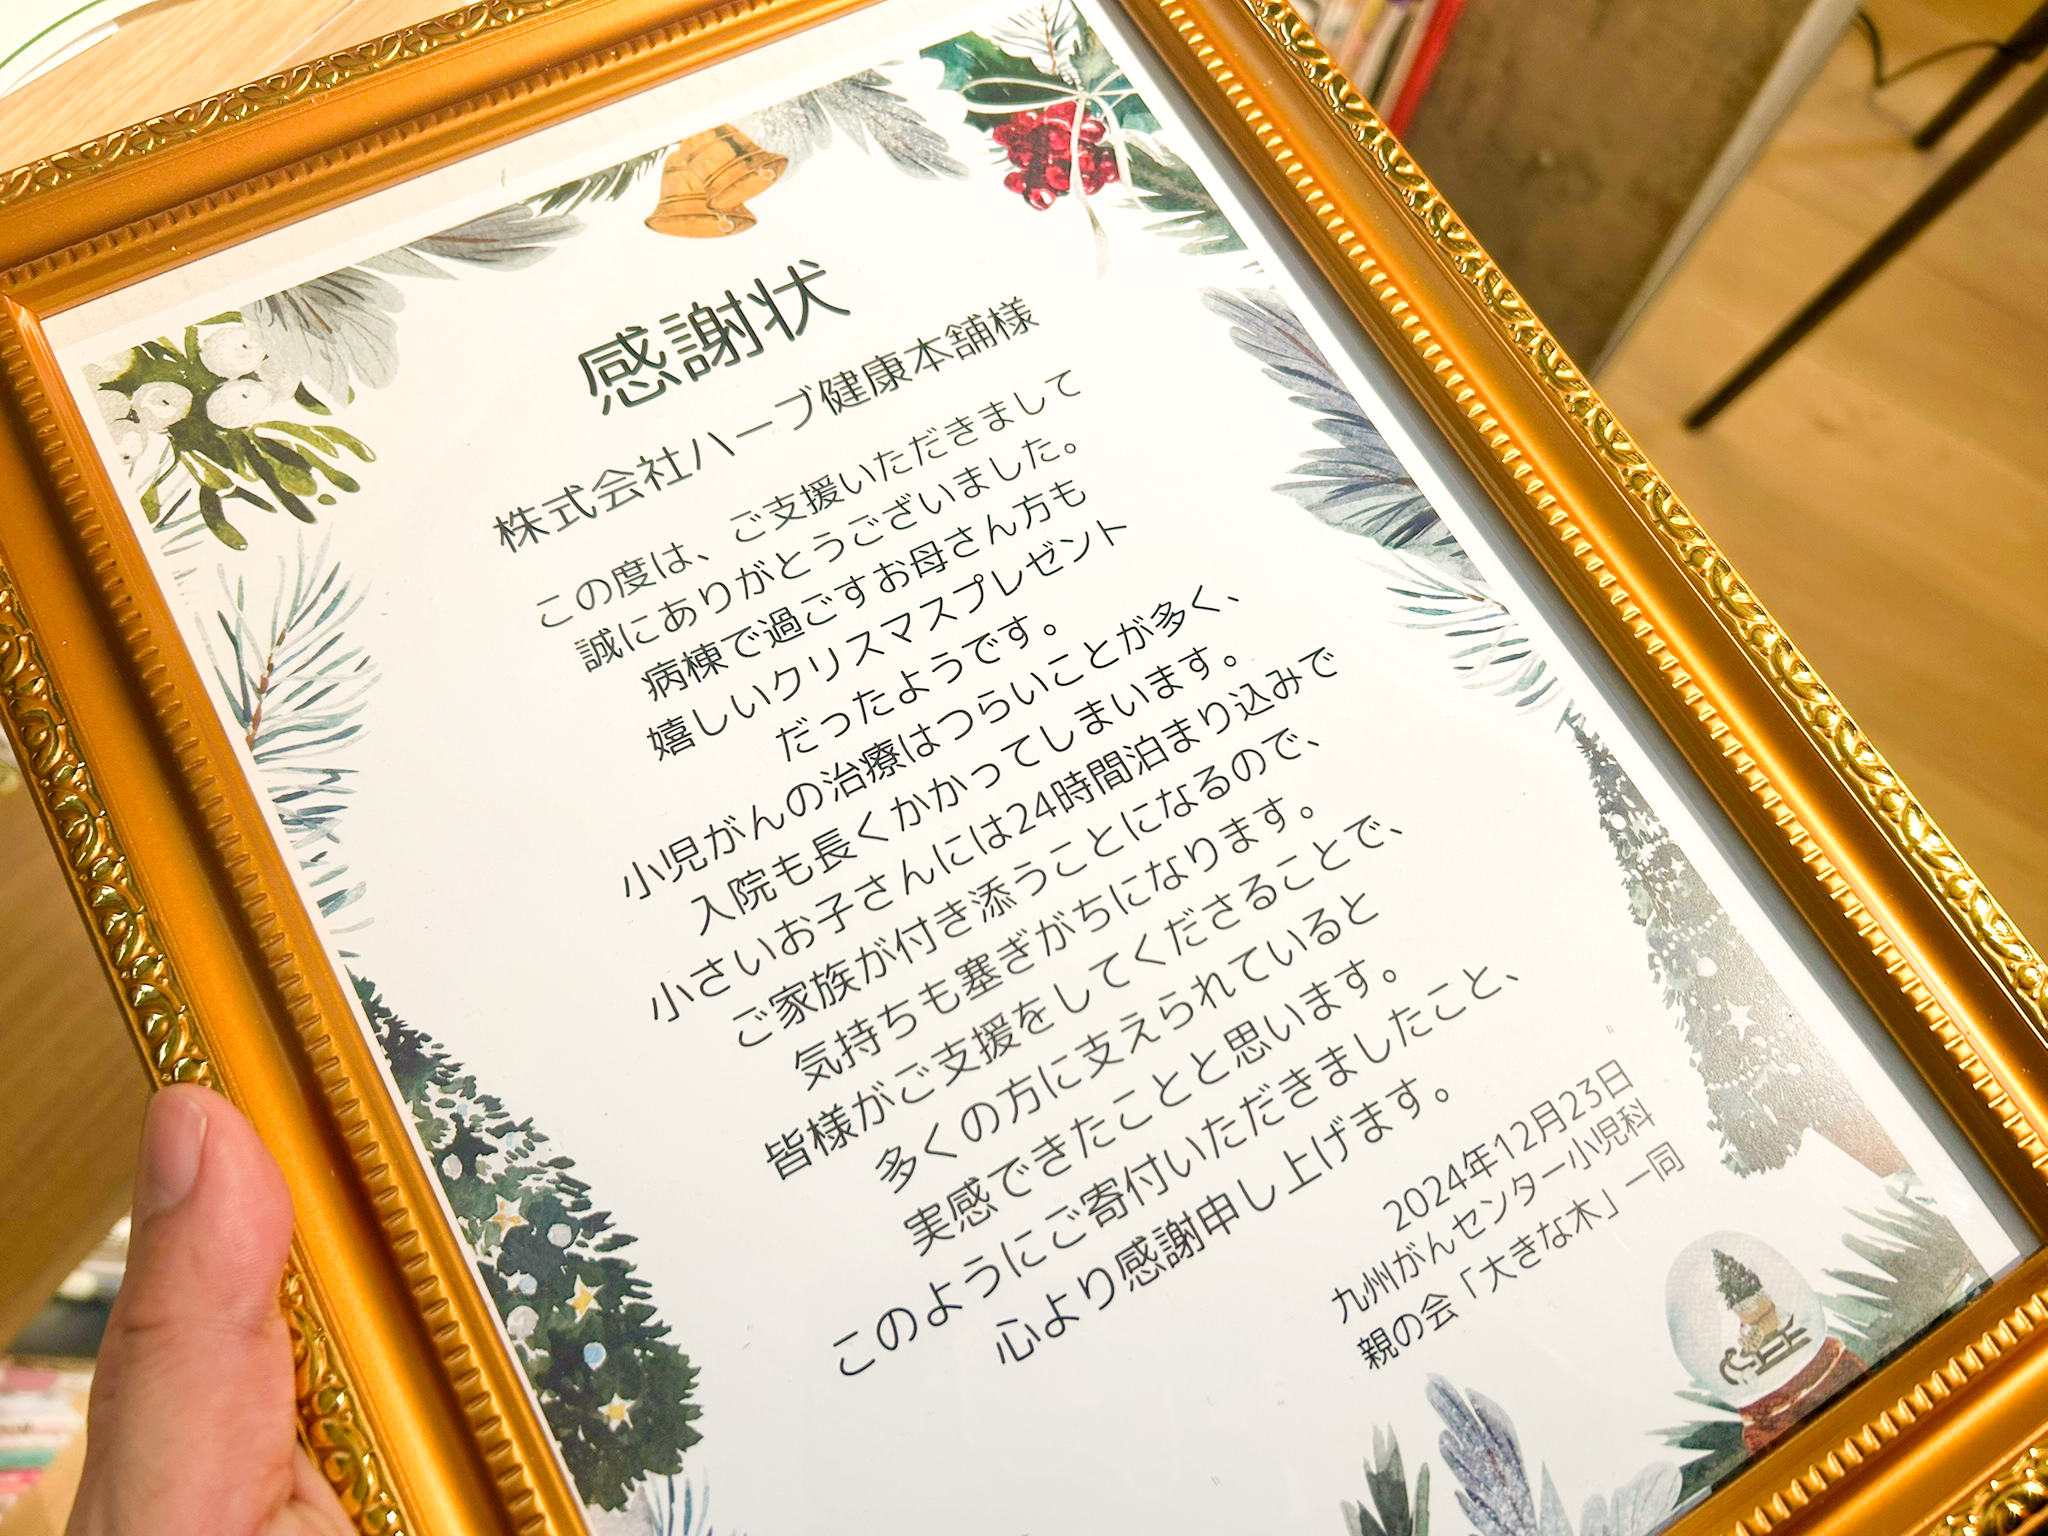 感謝状
株式会社ハーブ健康本舗様
この度は、ご支援いただきまして
誠にありがとうございました。
病棟で過ごすお母さん方も
嬉しいクリスマスプレゼント
だったようです。
小児がんの治療はつらいことが多く、
入院も長くかかってしまいます。
小さいお子さんには24時間泊まり込みで
ご家族が付き添うことになるので、
気持ちも塞ぎがちになります。
皆様がご支援をしてくださることで、
多くの方に支えられていると
実感できたことと思います。
このようにご寄付いただきましたこと、
心より感謝申し上げます。
2024年12月23日
九州がんセンター小児科
親の会「大きな木」一同